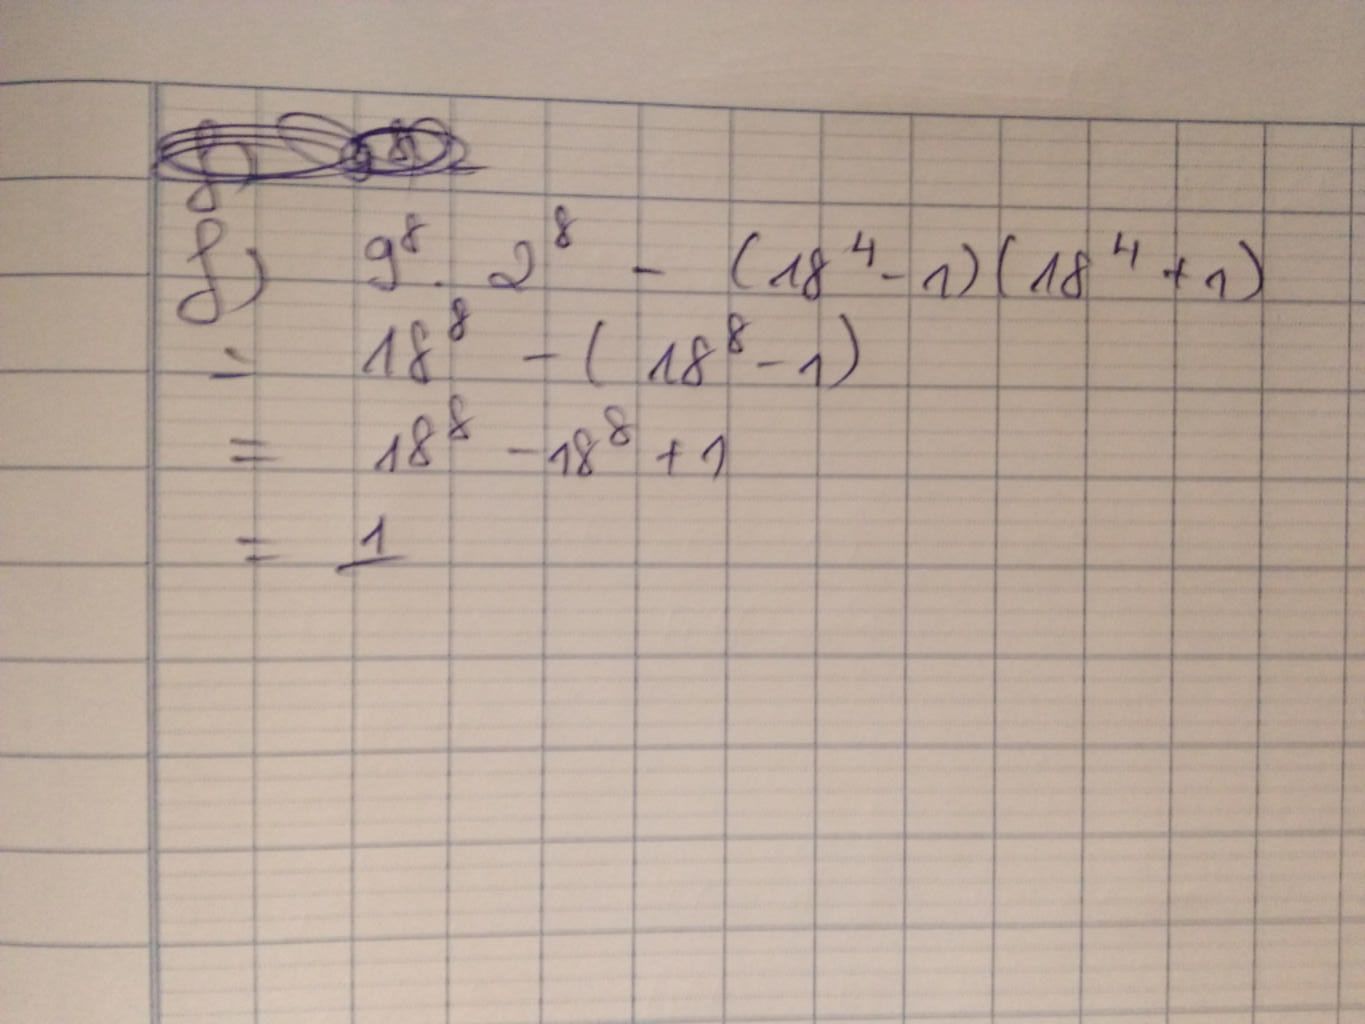 f) 9⁸ . 2⁸ - (18⁴ - 1)(18⁴ + 1)
= 18⁸ - (18⁸ - 1)
= 18⁸ - 18⁸ + 1
= 1